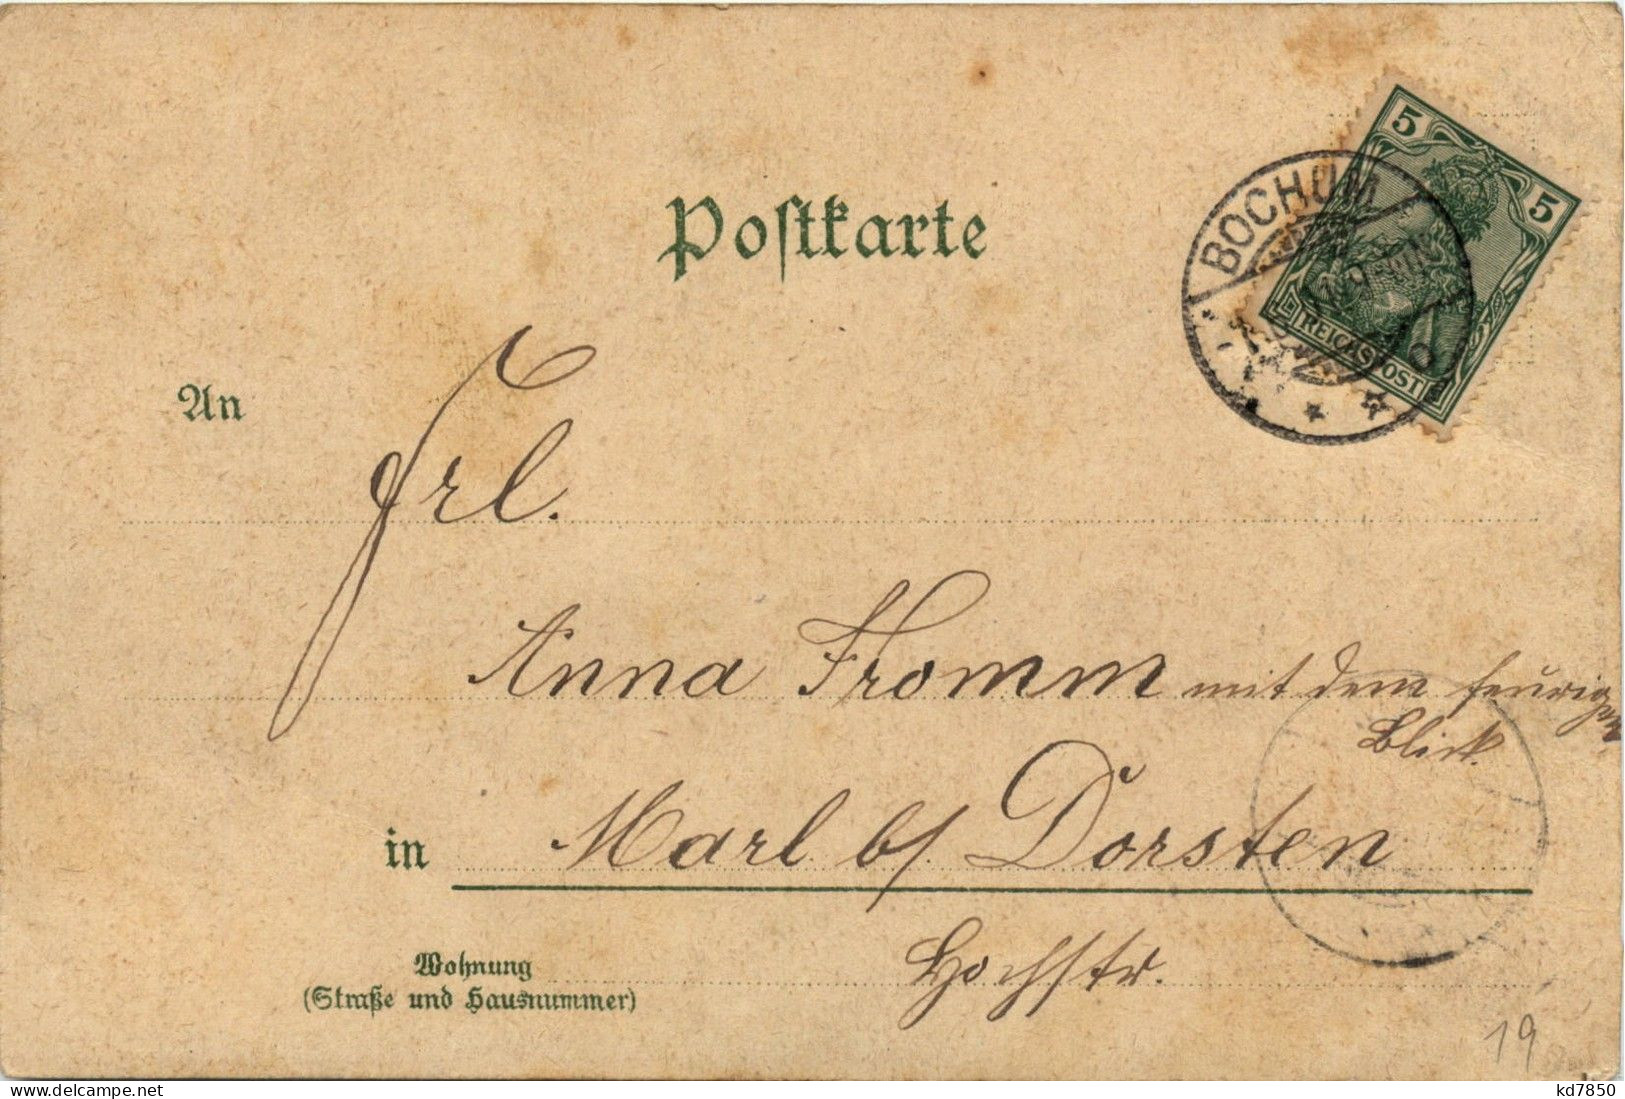 Postkarte
5
5
REICHSPOST
BOCHUM
An
Frl.
Anna Fromm mit dem feurigen
Blick.
in Marl b/ Dorsten
Hochstr.
Wohnung
(Straße und Hausnummer)
19
delcampe.net
kd7850